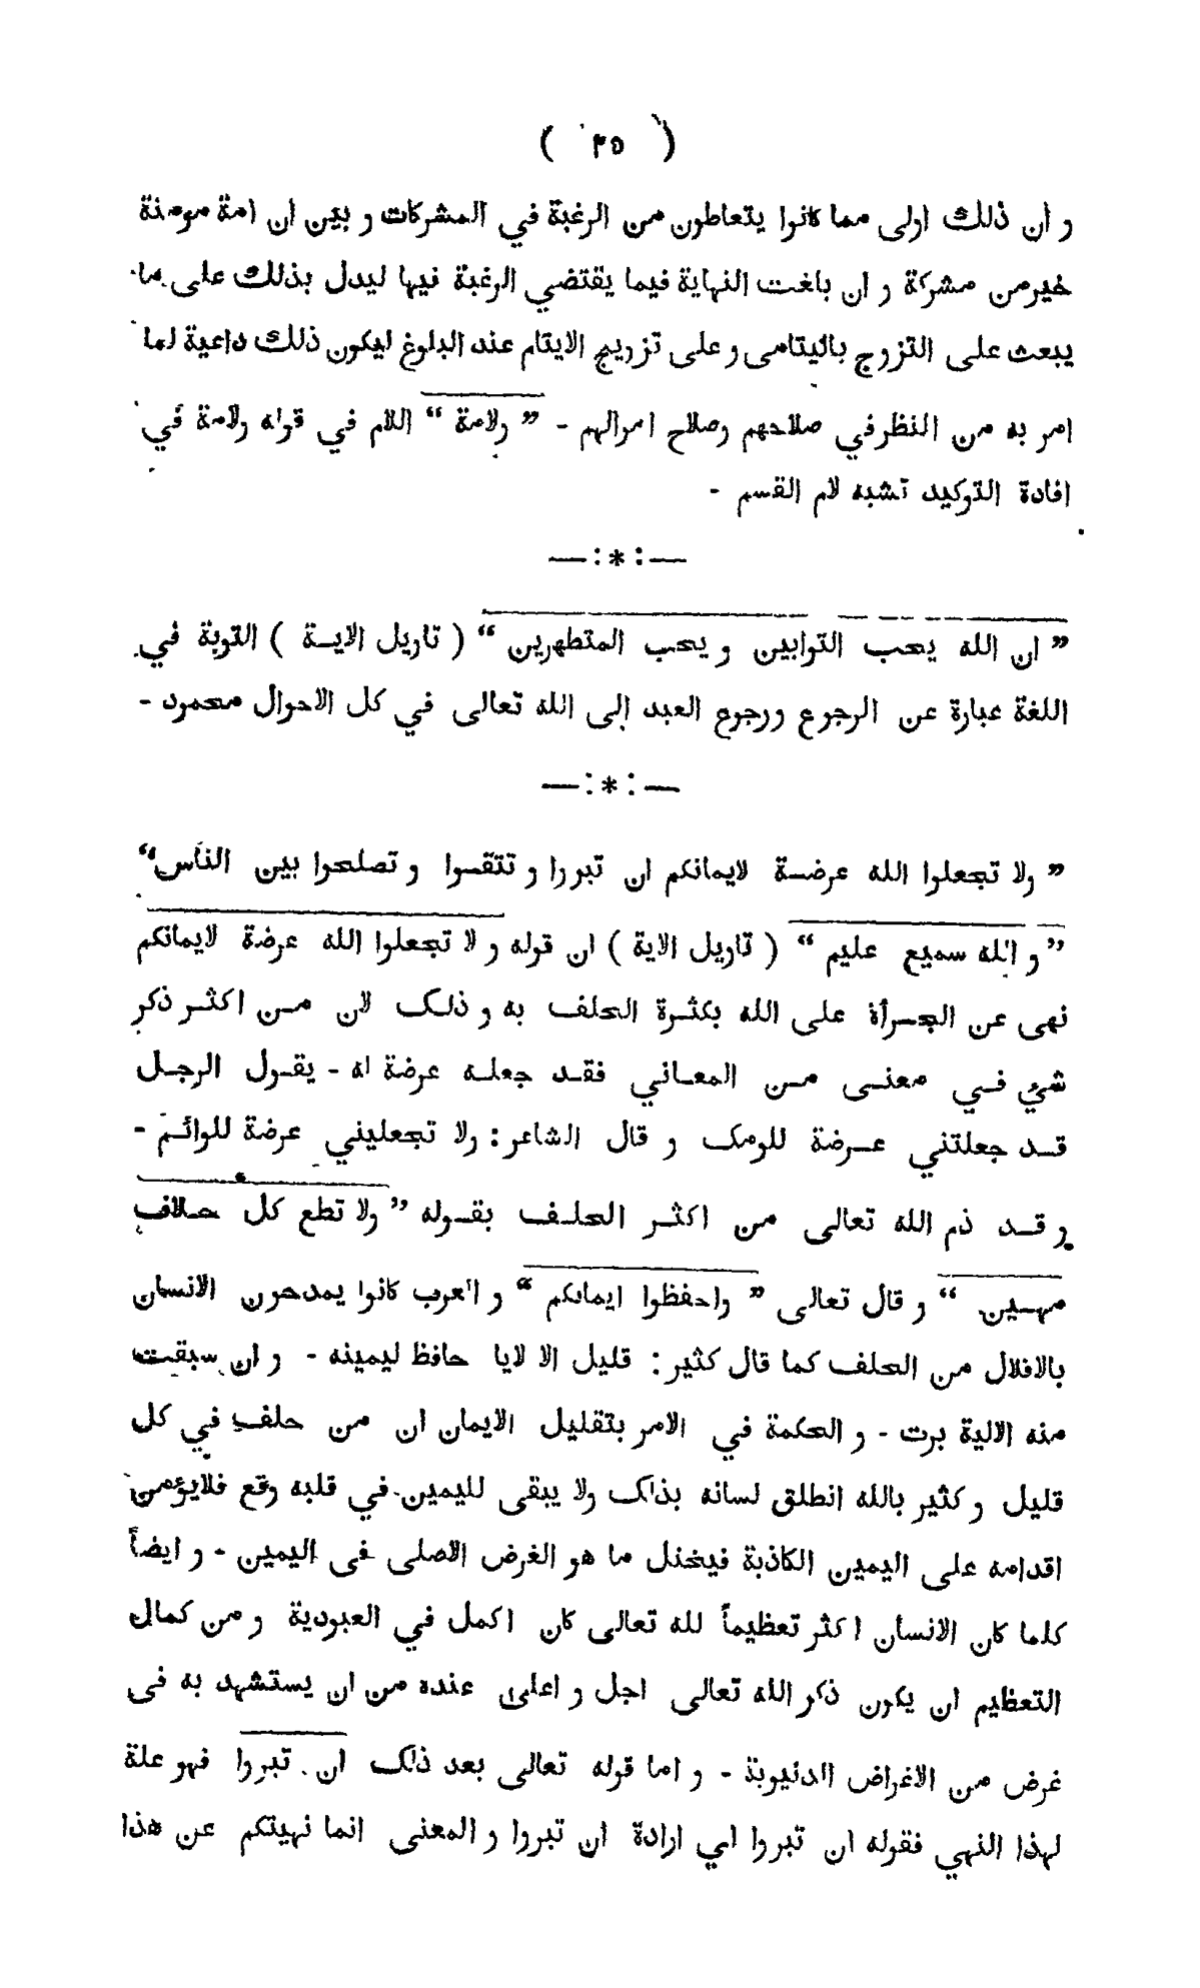 ( ٢٥ )
و ان ذلك اولى مما كانوا يتعاطون من الرغبة في المشركات و بين ان امة مومنة
خير من مشركة و ان بلغت النهاية فيما يقتضي الرغبة فيها ليدل بذلك على ما
يبعث على التزوج باليتامى و على تزويج الايتام عند البلوغ ليكون ذلك داعية لما
امر به من النظر في صلاحهم وصلاح اموالهم - ” ولامة “ اللام في قوله ولامة في
افادة التوكيد تشبه لام القسم -
—:*:—
” ان الله يحب التوابين و يحب المتطهرين “ ( تاويل الايـة ) التوبة في
اللغة عبارة عن الرجوع ورجوع العبد إلى الله تعالى في كل الاحوال محمود -
—:*:—
” ولا تجعلوا الله عرضـة لايمانكم ان تبروا و تتقـوا و تصلحوا بين الناس“
” و الله سميع عليم “ ( تاويل الاية ) ان قوله و لا تجعلوا الله عرضة لايمانكم
نهى عن الجـرأة على الله بكثـرة الحلف به و ذلـك لان مـن اكثـر ذكر
شئ فـي معنـى مـن المعـاني فقـد جعلـه عرضة له - يقـول الرجـل
قـد جعلتني عـرضة للومك و قال الشاعر : ولا تجعليني عرضة للوائـم -
و قـد ذم الله تعالى من اكثـر الحلـف بقـوله ” ولا تطع كل حـلاف
مهـين “ و قال تعالى ” واحفظوا ايمانكم “ و العرب كانوا يمدحون الانسان
بالاقلال من الحلف كما قال كثير : قليل الا لايا حافظ ليمينه - و ان سبقت
منه الالية برت - و الحكمة في الامر بتقليل الايمان ان من حلف في كل
قليل و كثير بالله انطلق لسانه بذلك ولا يبقى لليمين في قلبه وقع فلايؤمن
اقدامه على اليمين الكاذبة فيختل ما هو الغرض الاصلى فى اليمين - و ايضاً
كلما كان الانسان اكثر تعظيماً لله تعالى كان اكمل في العبودية و من كمال
التعظيم ان يكون ذكر الله تعالى اجل و اعلى عنده من ان يستشهد به فى
غرض من الاغراض الدنيوية - و اما قوله تعالى بعد ذلك ان تبروا فهو علة
لهذا النهي فقوله ان تبروا اي ارادة ان تبروا و المعنى انما نهيتكم عن هذا